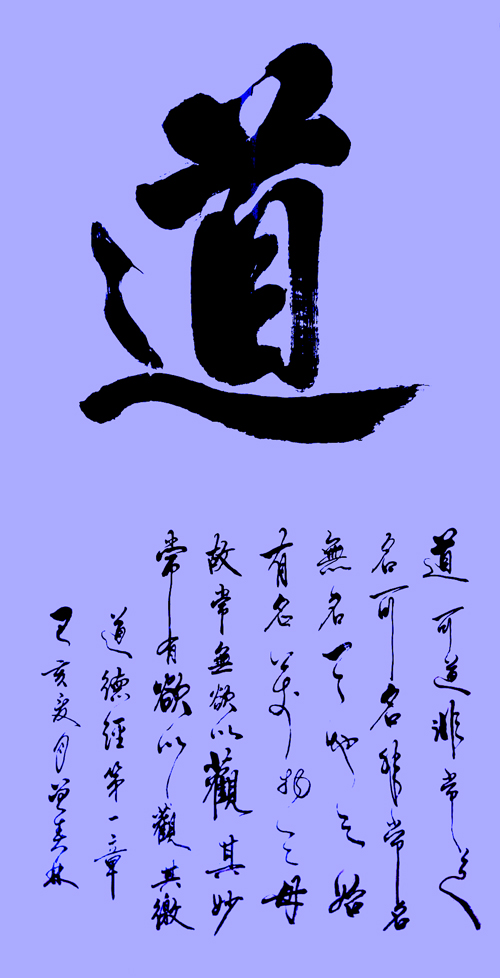 道
道可道非常道
名可名非常名
無名天地之始
有名萬物之母
故常無欲以觀其妙
常有欲以觀其徼
道德經第一章
己亥夏月林